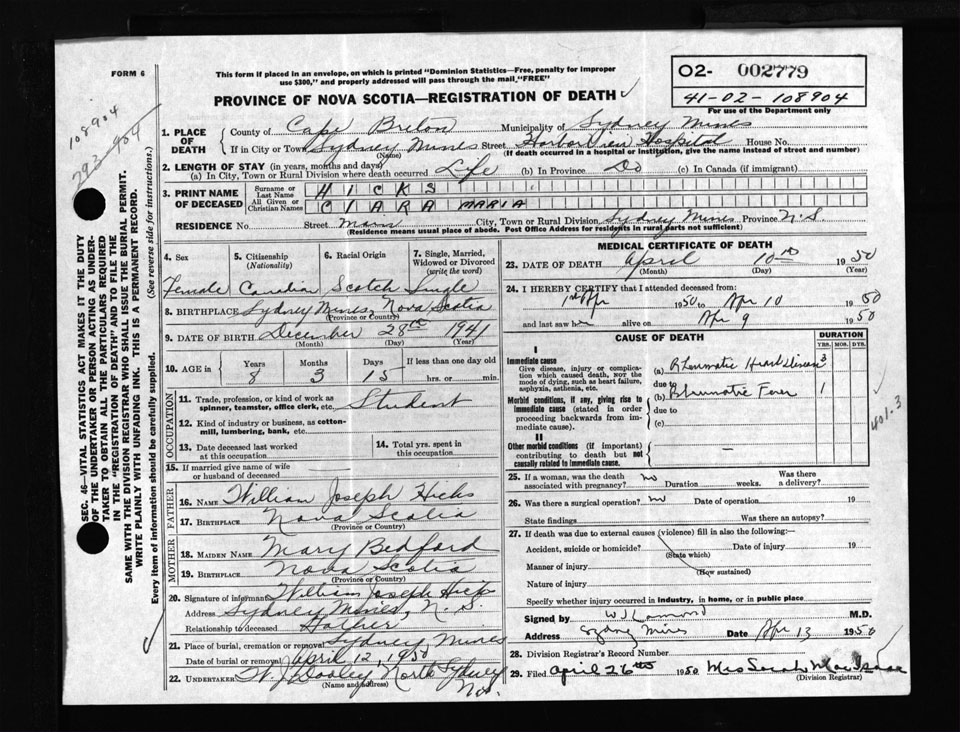 FORM 6
This form if placed in an envelope, on which is printed "Dominion Statistics—Free, penalty for improper
use $300," and properly addressed will pass through the mail, "FREE"
O2- 002779
41-02-108904
For use of the Department only
PROVINCE OF NOVA SCOTIA—REGISTRATION OF DEATH
108904
SEC. 46—VITAL STATISTICS ACT MAKES IT THE DUTY
OF THE UNDERTAKER OR PERSON ACTING AS UNDER-
TAKER TO OBTAIN ALL THE PARTICULARS REQUIRED
IN THE "REGISTRATION OF DEATH" AND TO FILE THE
SAME WITH THE DIVISION REGISTRAR WHO SHALL ISSUE THE BURIAL PERMIT.
WRITE PLAINLY WITH UNFADING INK. THIS IS A PERMANENT RECORD.
Every item of information should be carefully supplied. (See reverse side for instructions.)
1. PLACE OF DEATH
County of Cape Breton Municipality of Sydney Mines
If in City or Town Sydney Mines Street Harbor View Hospital House No.
(Name) (If death occurred in a hospital or institution, give the name instead of street and number)
2. LENGTH OF STAY (in years, months and days)
(a) In City, Town or Rural Division where death occurred Life (b) In Province Do (c) In Canada (if immigrant)
3. PRINT NAME OF DECEASED
Surname or Last Name HICKS
All Given or Christian Names CLARA MARIA
RESIDENCE No. Street Main City, Town or Rural Division Sydney Mines Province N.S.
(Residence means usual place of abode. Post Office Address for residents in rural parts not sufficient)
4. Sex
Female
5. Citizenship (Nationality)
Canadian
6. Racial Origin
Scotch
7. Single, Married, Widowed or Divorced (write the word)
Single
8. BIRTHPLACE Sydney Mines, Nova Scotia
(Province or Country)
9. DATE OF BIRTH December 28th 1941
(Month) (Day) (Year)
10. AGE in Years Months Days If less than one day old
8 3 15 hrs. or min.
OCCUPATION
11. Trade, profession, or kind of work as spinner, teamster, office clerk, etc. Student
12. Kind of industry or business, as cotton-mill, lumbering, bank, etc.
13. Date deceased last worked at this occupation
14. Total yrs. spent in this occupation
15. If married give name of wife or husband of deceased
FATHER
16. NAME William Joseph Hicks
17. BIRTHPLACE Nova Scotia
(Province or Country)
MOTHER
18. MAIDEN NAME Mary Bedford
19. BIRTHPLACE Nova Scotia
(Province or Country)
20. Signature of informant William Joseph Hicks
Address Sydney Mines, N.S.
Relationship to deceased Father
21. Place of burial, cremation or removal Sydney Mines
Date of burial or removal April 12, 1950
22. UNDERTAKER W. J. Dooley North Sydney
(Name and address) N.S.
MEDICAL CERTIFICATE OF DEATH
23. DATE OF DEATH April 10th 1950
(Month) (Day) (Year)
24. I HEREBY CERTIFY that I attended deceased from:
1st Apr 1950 to Apr 10 1950
and last saw her alive on Apr 9 1950
CAUSE OF DEATH
DURATION
YRS. MOS. DYS.
I
Immediate cause
Give disease, injury or complication which caused death, not the mode of dying, such as heart failure, asphyxia, asthenia, etc.
(a) Rheumatic Heart Disease 3
due to
(b) Rheumatic Fever 1
Morbid conditions, if any, giving rise to immediate cause (stated in order proceeding backwards from immediate cause).
due to
(c)
401.3
II
Other morbid conditions (if important) contributing to death but not causally related to immediate cause.
25. If a woman, was the death associated with pregnancy? no Duration weeks. Was there a delivery?
26. Was there a surgical operation? no Date of operation 19
State findings Was there an autopsy?
27. If death was due to external causes (violence) fill in also the following:
Accident, suicide or homicide? Date of injury 19
(State which)
Manner of injury
(How sustained)
Nature of injury
Specify whether injury occurred in industry, in home, or in public place
Signed by M.D.
Address Sydney Mines Date Apr 13 1950
28. Division Registrar's Record Number
29. Filed April 26th 1950 Mrs Sarah MacIsaac
(Division Registrar)